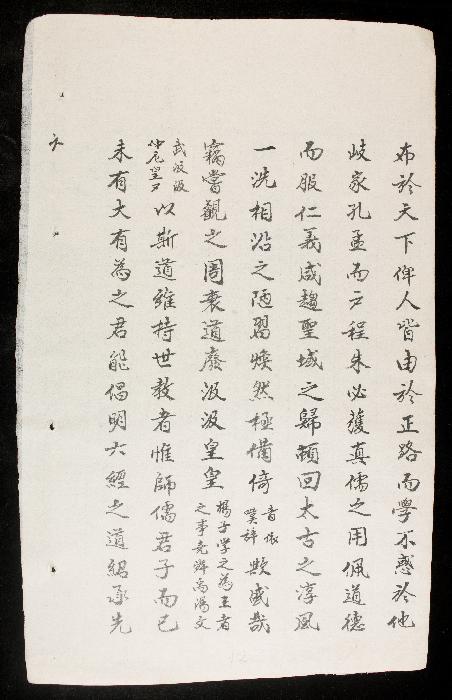 布於天下俾人皆由於正路而學不惑於他
岐家孔孟而户程朱必獲真儒之用佩道德
而服仁義咸趨聖域之歸頓回太古之淳風
一洗相沿之陋習煥然極備倚音依嘆辞歟盛哉
竊嘗觀之周衰道廢汲汲皇皇楊子学之為王者之事尭舜禹湯文
武汲汲仲尼皇々以斯道維持世教者惟師儒君子而已
未有大有為之君能倡明六經之道紹承先